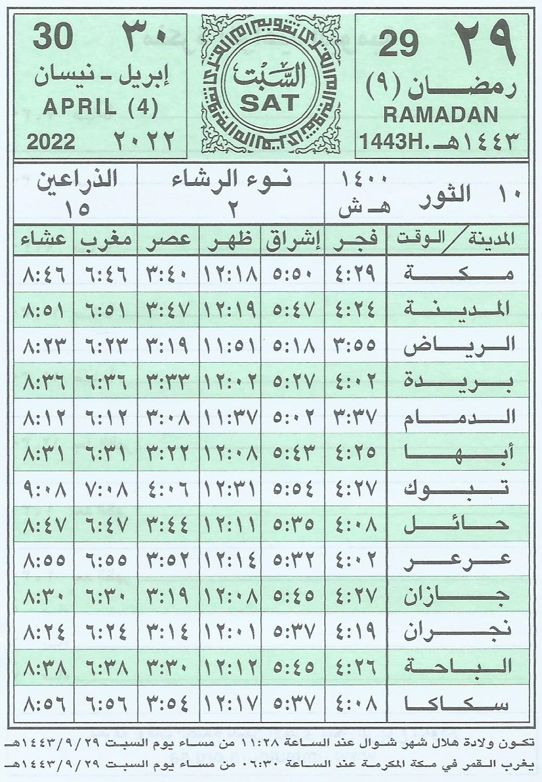 ٢٩ 29 ٣٠ 30
رمضان (٩) السَّبْت إبريل - نيسان
RAMADAN SAT APRIL (4)
1443H. ١٤٤٣هـ ٢٠٢٢ 2022
١٠ الثور ١٤٠٠ هـ ش نوء الرشاء ٢ الذراعين ١٥
المدينة / الوقت فجر إشراق ظهر عصر مغرب عشاء
مكة ٤:٢٩ ٥:٥٠ ١٢:١٨ ٣:٤٠ ٦:٤٦ ٨:٤٦
المدينة ٤:٢٤ ٥:٤٧ ١٢:١٩ ٣:٤٧ ٦:٥١ ٨:٥١
الرياض ٣:٥٥ ٥:١٨ ١١:٥١ ٣:١٩ ٦:٢٣ ٨:٢٣
بريدة ٤:٠٢ ٥:٢٧ ١٢:٠٢ ٣:٣٣ ٦:٣٦ ٨:٣٦
الدمام ٣:٣٧ ٥:٠٢ ١١:٣٧ ٣:٠٨ ٦:١٢ ٨:١٢
أبها ٤:٢٥ ٥:٤٣ ١٢:٠٨ ٣:٢٢ ٦:٣١ ٨:٣١
تبوك ٤:٢٧ ٥:٥٤ ١٢:٣١ ٤:٠٦ ٧:٠٨ ٩:٠٨
حائل ٤:٠٨ ٥:٣٥ ١٢:١١ ٣:٤٤ ٦:٤٧ ٨:٤٧
عرعر ٤:٠٢ ٥:٣٢ ١٢:١٤ ٣:٥٢ ٦:٥٥ ٨:٥٥
جازان ٤:٢٧ ٥:٤٥ ١٢:٠٨ ٣:١٩ ٦:٣٠ ٨:٣٠
نجران ٤:١٩ ٥:٣٧ ١٢:٠١ ٣:١٤ ٦:٢٤ ٨:٢٤
الباحة ٤:٢٦ ٥:٤٥ ١٢:١٢ ٣:٣٠ ٦:٣٨ ٨:٣٨
سكاكا ٤:٠٨ ٥:٣٧ ١٢:١٧ ٣:٥٤ ٦:٥٦ ٨:٥٦
تكون ولادة هلال شهر شوال عند الساعة ١١:٢٨ من مساء يوم السبت ١٤٤٣/٩/٢٩هـ
يغرب القمر في مكة المكرمة عند الساعة ٠٦:٣٠ من مساء يوم السبت ١٤٤٣/٩/٢٩هـ